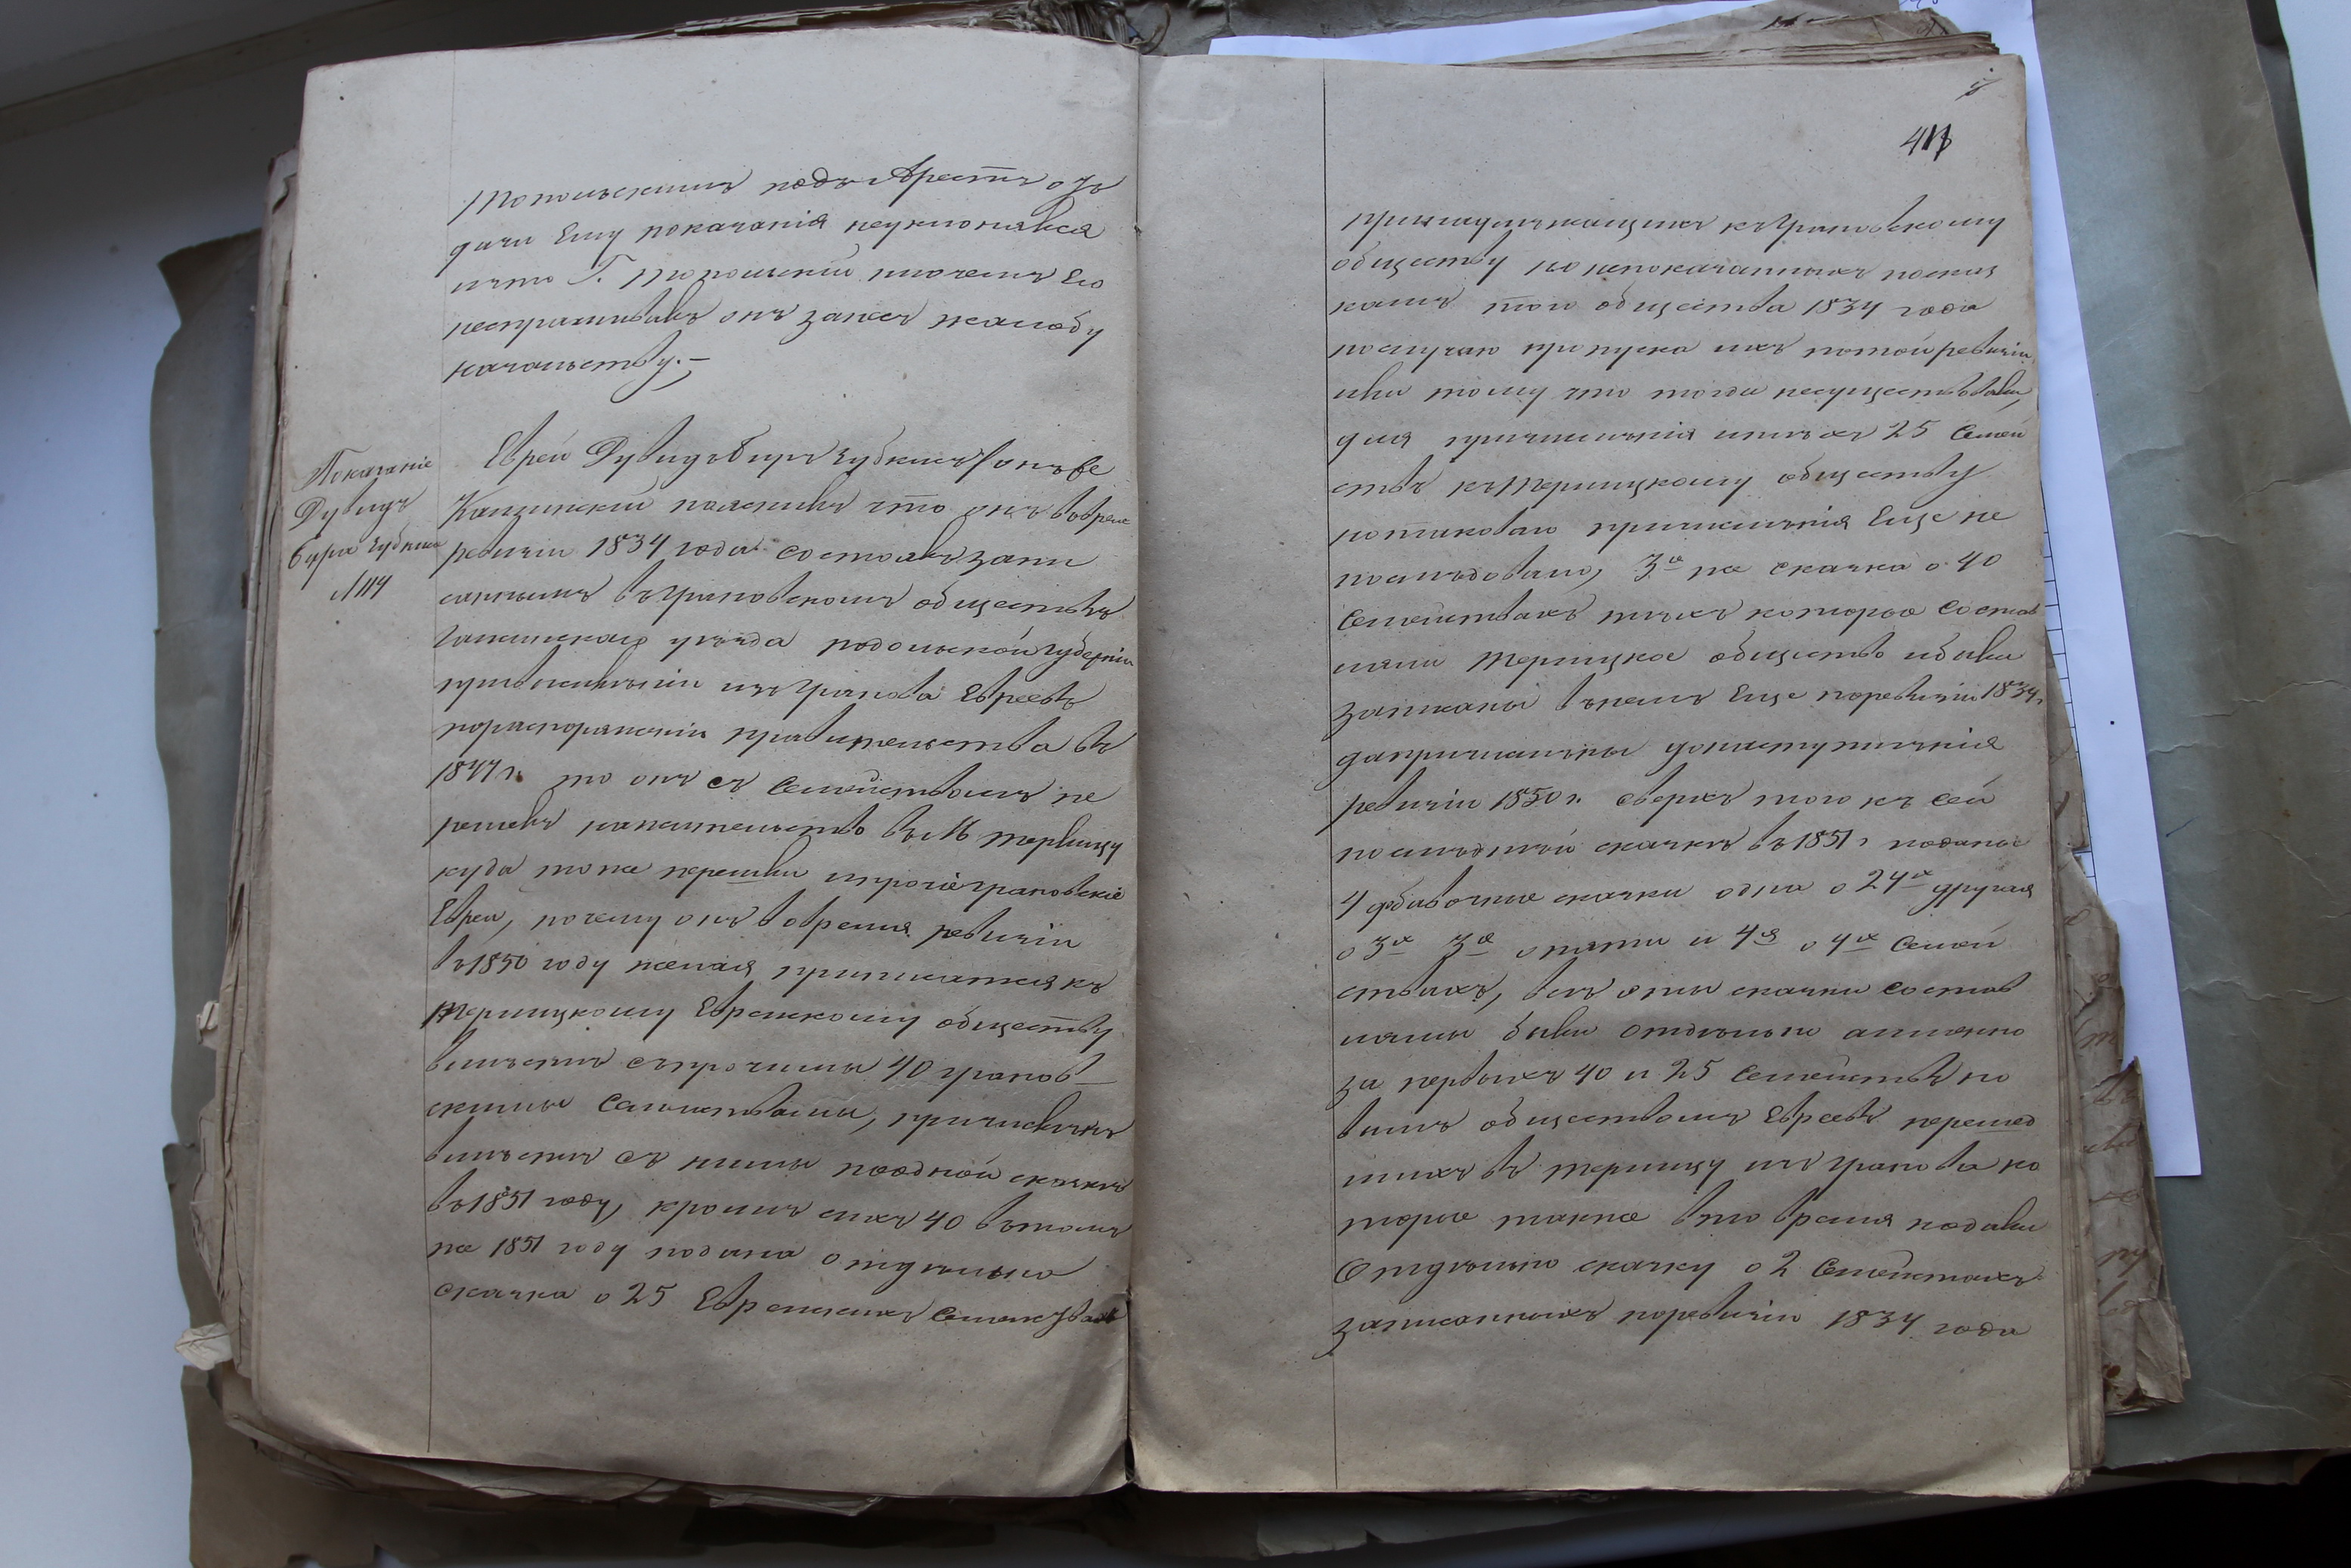 Топольскимъ подъ Арестъ отъ
дачи Ему показанія неуклонялся
и что Г. Топольскій ни о чемъ Его
неспрашивалъ онъ занесъ жалобу
начальству.—
Показаніе
Дувидъ
Бера Губкина
Еврей Дувидъ Беръ Губкинъ /онъ же
Канзинскій пояснилъ что онъ во время
ревизіи 1834 года состоялъ запи
саннымъ въ Грановскомъ обществѣ
Гайсинскаго уѣзда подольской губерніи
по распоряженію правительства въ
1844 г. то онъ съ Семействомъ пе
решелъ на жительство въ М Терлицу
куда тоже перешли и прочіе грановскіе
Евреи, почему онъ во время ревизіи
въ 1850 году желая приписаться къ
Терлицкому Еврейскому обществу
вмѣстѣ съ прочими 40 гранов
скими Семействами,
вмѣстѣ съ ними по одной сказкѣ
въ 1851 году, кромѣ сихъ 40 въ томъ
же 1851 году подана отдѣльно
сказка о 25 Еврейскихъ Семействахъ
411
принадлежащихъ къ Грановскому
обществу но непоказанныхъ по сказ
камъ того общества 1834 года
по случаю пропуска ихъ по той ревизіи
или тому что тогда несуществовали,
для причисленія и тѣхъ 25 Семей
ствъ къ Терлицкому обществу
но таковаго причисленія Еще не
послѣдовало, 3я же сказка о 40
Семействахъ тѣхъ которые состав
ляли Терлицкое общество и были
записаны въ немъ Еще по ревизіи 1834 г.
до наступленія
ревизіи 1850 г. сверхъ того къ сей
послѣдней сказкѣ въ 1851 г поданы
4 добавочные сказки одна о 24х другая
о 3х 3я о пяти и 4я о 4х Семей
ствахъ, всѣ эти сказки состав
ляемы были отдѣльно а именно
за первыхъ 40 и 25 Семействъ но
вымъ обществомъ Евреевъ перешед
шихъ въ Терлицу изъ Гранова ко
торые также въ то время подали
Отдѣльно сказку о 2 Семействахъ
записанныхъ по ревизіи 1834 года